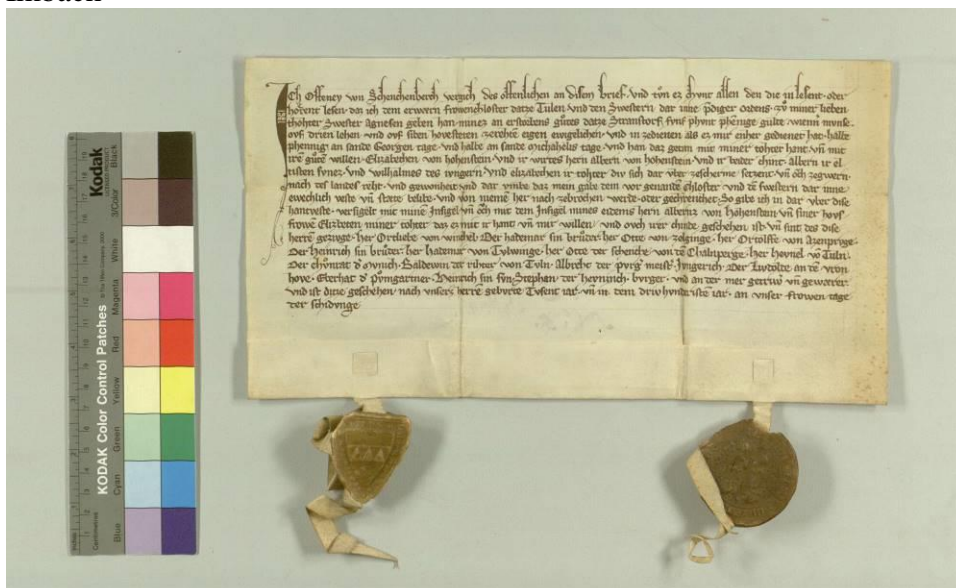 Ich Offeney von Schenchenberch vergich des offenlichen an disem brief vnd tvn ez chvnt allen den die in lesent oder
hörent lesen daz ich dem erwern frowenchloster datze Tulen vnd den Swestern dar inne prediger ordens zv miner lieben
thohter Swester Agnesen geben han minez an erstorbens gutes datze Stranstorf fvnf phvnt phenninge gulte
ovf drien lehen vnd ovf siben hovesteten zerehte eigen ewigelichen vnd in zedienen als ez mir enher gedienet hat halbe
phennig an sande Georgen tage vnd halbe an sande michahelis tage vnd han daz getan mit miner tohter hant vn mit
ire gute willen Elizabethen von hohenstein vnd ir wirtes hern alberen von hohenstein vnd ir beder chint albern ir
eltisten svnes vnd willhalmes des ivngern vnd elizabethen ir tohter div sich dar vber zescherme setzent vn och zegwern
nach des landes reht vnd gewonheit vnd dar vmbe daz mein gabe dem vor genante chloster vnd den swestern dar inne
ewechlich veste vn stæte belibe vnd von nieme her nach zebrochen werde oder gechrenchet So gibe ich in dar vber dise
hantveste versigelt mit mine Insigel vn och mit dem Insigel mines eidems hern alberez von hohenstein vn siner hovs
frowe Elizbeten miner tohter daz ez mit ir hant vn mit willen vnd ovch irer chinde geschehen ist vn sint des dise
herre gezivge her Ortliebe von winchel Der hademar sin brvder her Otte von zelginge her Ortolffe von Azenprvge
Der heinrich sin brvder her hademar von Tylwinge her Otte der schenche von Chalnperge her hovnel von Tuln
Der chonrat d mvnich Baldewin der rihter von Tuln Albreht der pvrg meist Imgerich Der Livtolde an de vron
hove Eberhart d povmgartner Heinrich sin svn Stephan der heyninch bvrger vnd an der mer getriw vn gewærer
vnd ist ditze geschehen nach vnsers herre gebvrte Tvsent iar vn in dem driv hvnderiste iar an vnser frowen tage
der schidvnge
Kodak
KODAK Color Control Patches
Blue
Cyan
Green
Yellow
Red
Magenta
White
3/Color
Black
Centimetres
Inches